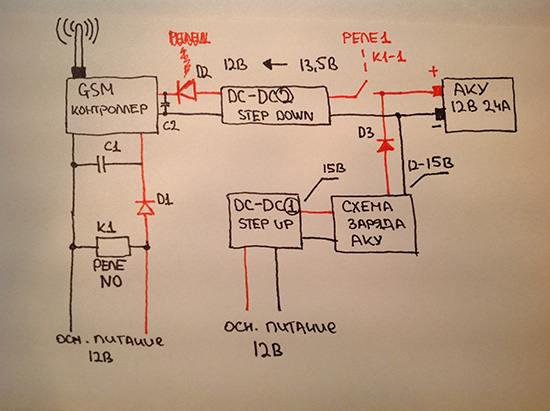 РЕЛЕ 1
12В ← 13,5В
K1-1
D2
GSM
КОНТРОЛЛЕР
DC-DC 2
STEP DOWN
+
АКУ
12В 24А
-
C2
C1
D3
D1
15В
12-15В
DC-DC 1
STEP UP
СХЕМА
ЗАРЯДА
АКУ
K1
РЕЛЕ
NO
ОСН. ПИТАНИЕ
12В
ОСН. ПИТАНИЕ
12В